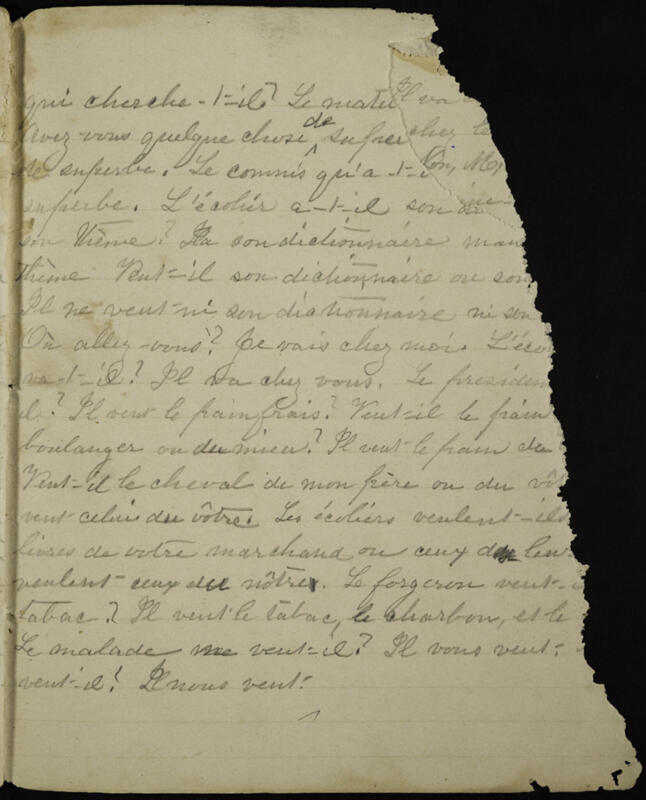 qui cherche-t-il? Le mate Il va
Avez-vous quelque chose de super chez le
de superbe. Le commis qu'a-t-i Non, M,
superbe. L'écolier a-t-il son di
son thème? Il a son dictionnaire mau
thème Veut-il son dictionnaire ou son
Il ne veut ni son dictionnaire ni son
Où allez-vous? Je vais chez moi. L'éco
va-t-il? Il va chez vous. Le presiden
il? Il veut le pain frais? Veut-il le pain
boulanger ou du mien? Il veut le pain du
Veut-il le cheval de mon frère ou du vôt
veut celui du vôtre. Les écoliers veulent-ils
livres de votre marchand ou ceux des leur
veulent ceux du nôtre. Le forgeron veut-
tabac? Il veut le tabac, le charbon, et le
Le malade me veut-il? Il vous veut.
veut-il? Il nous veut.